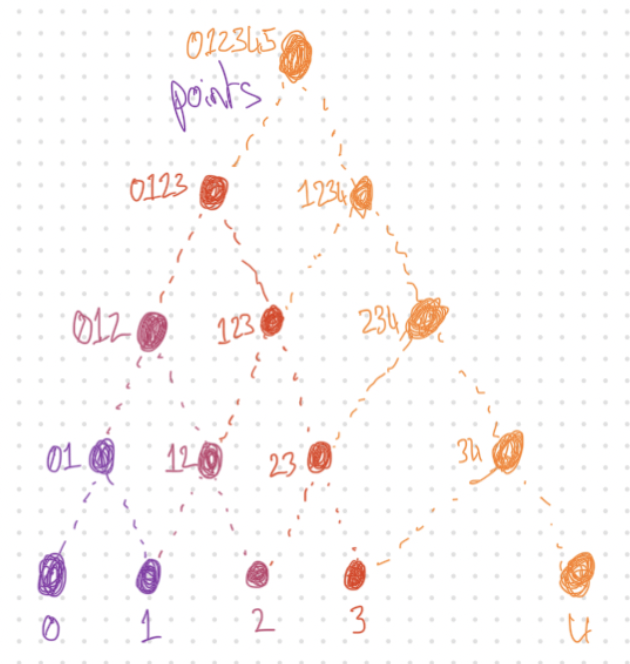 012345
points
0123 1234
012 123 234
01 12 23 34
0 1 2 3 4